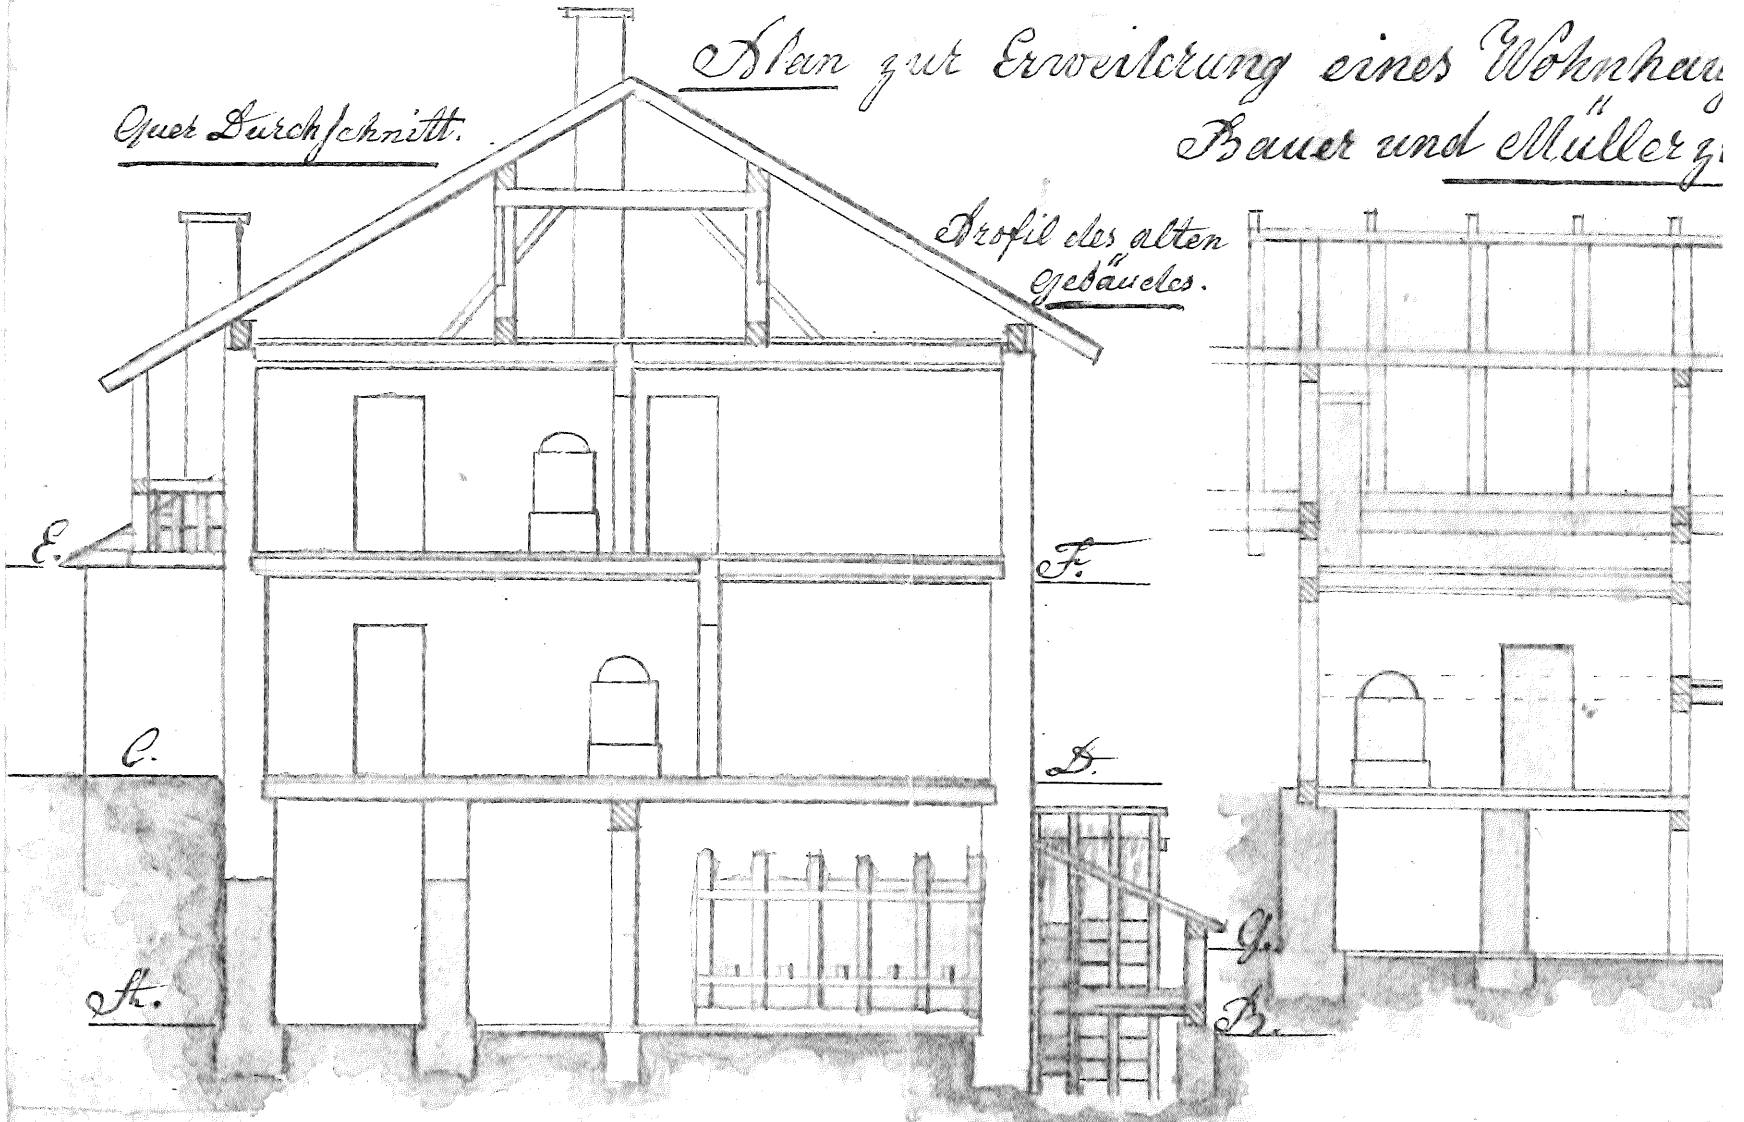 Plan zur Erweiterung eines Wohnhau
Bauer und Müller z
Quer Durchschnitt.
Profil des alten
Gebäudes.
E.
F.
C.
D.
G.
B.